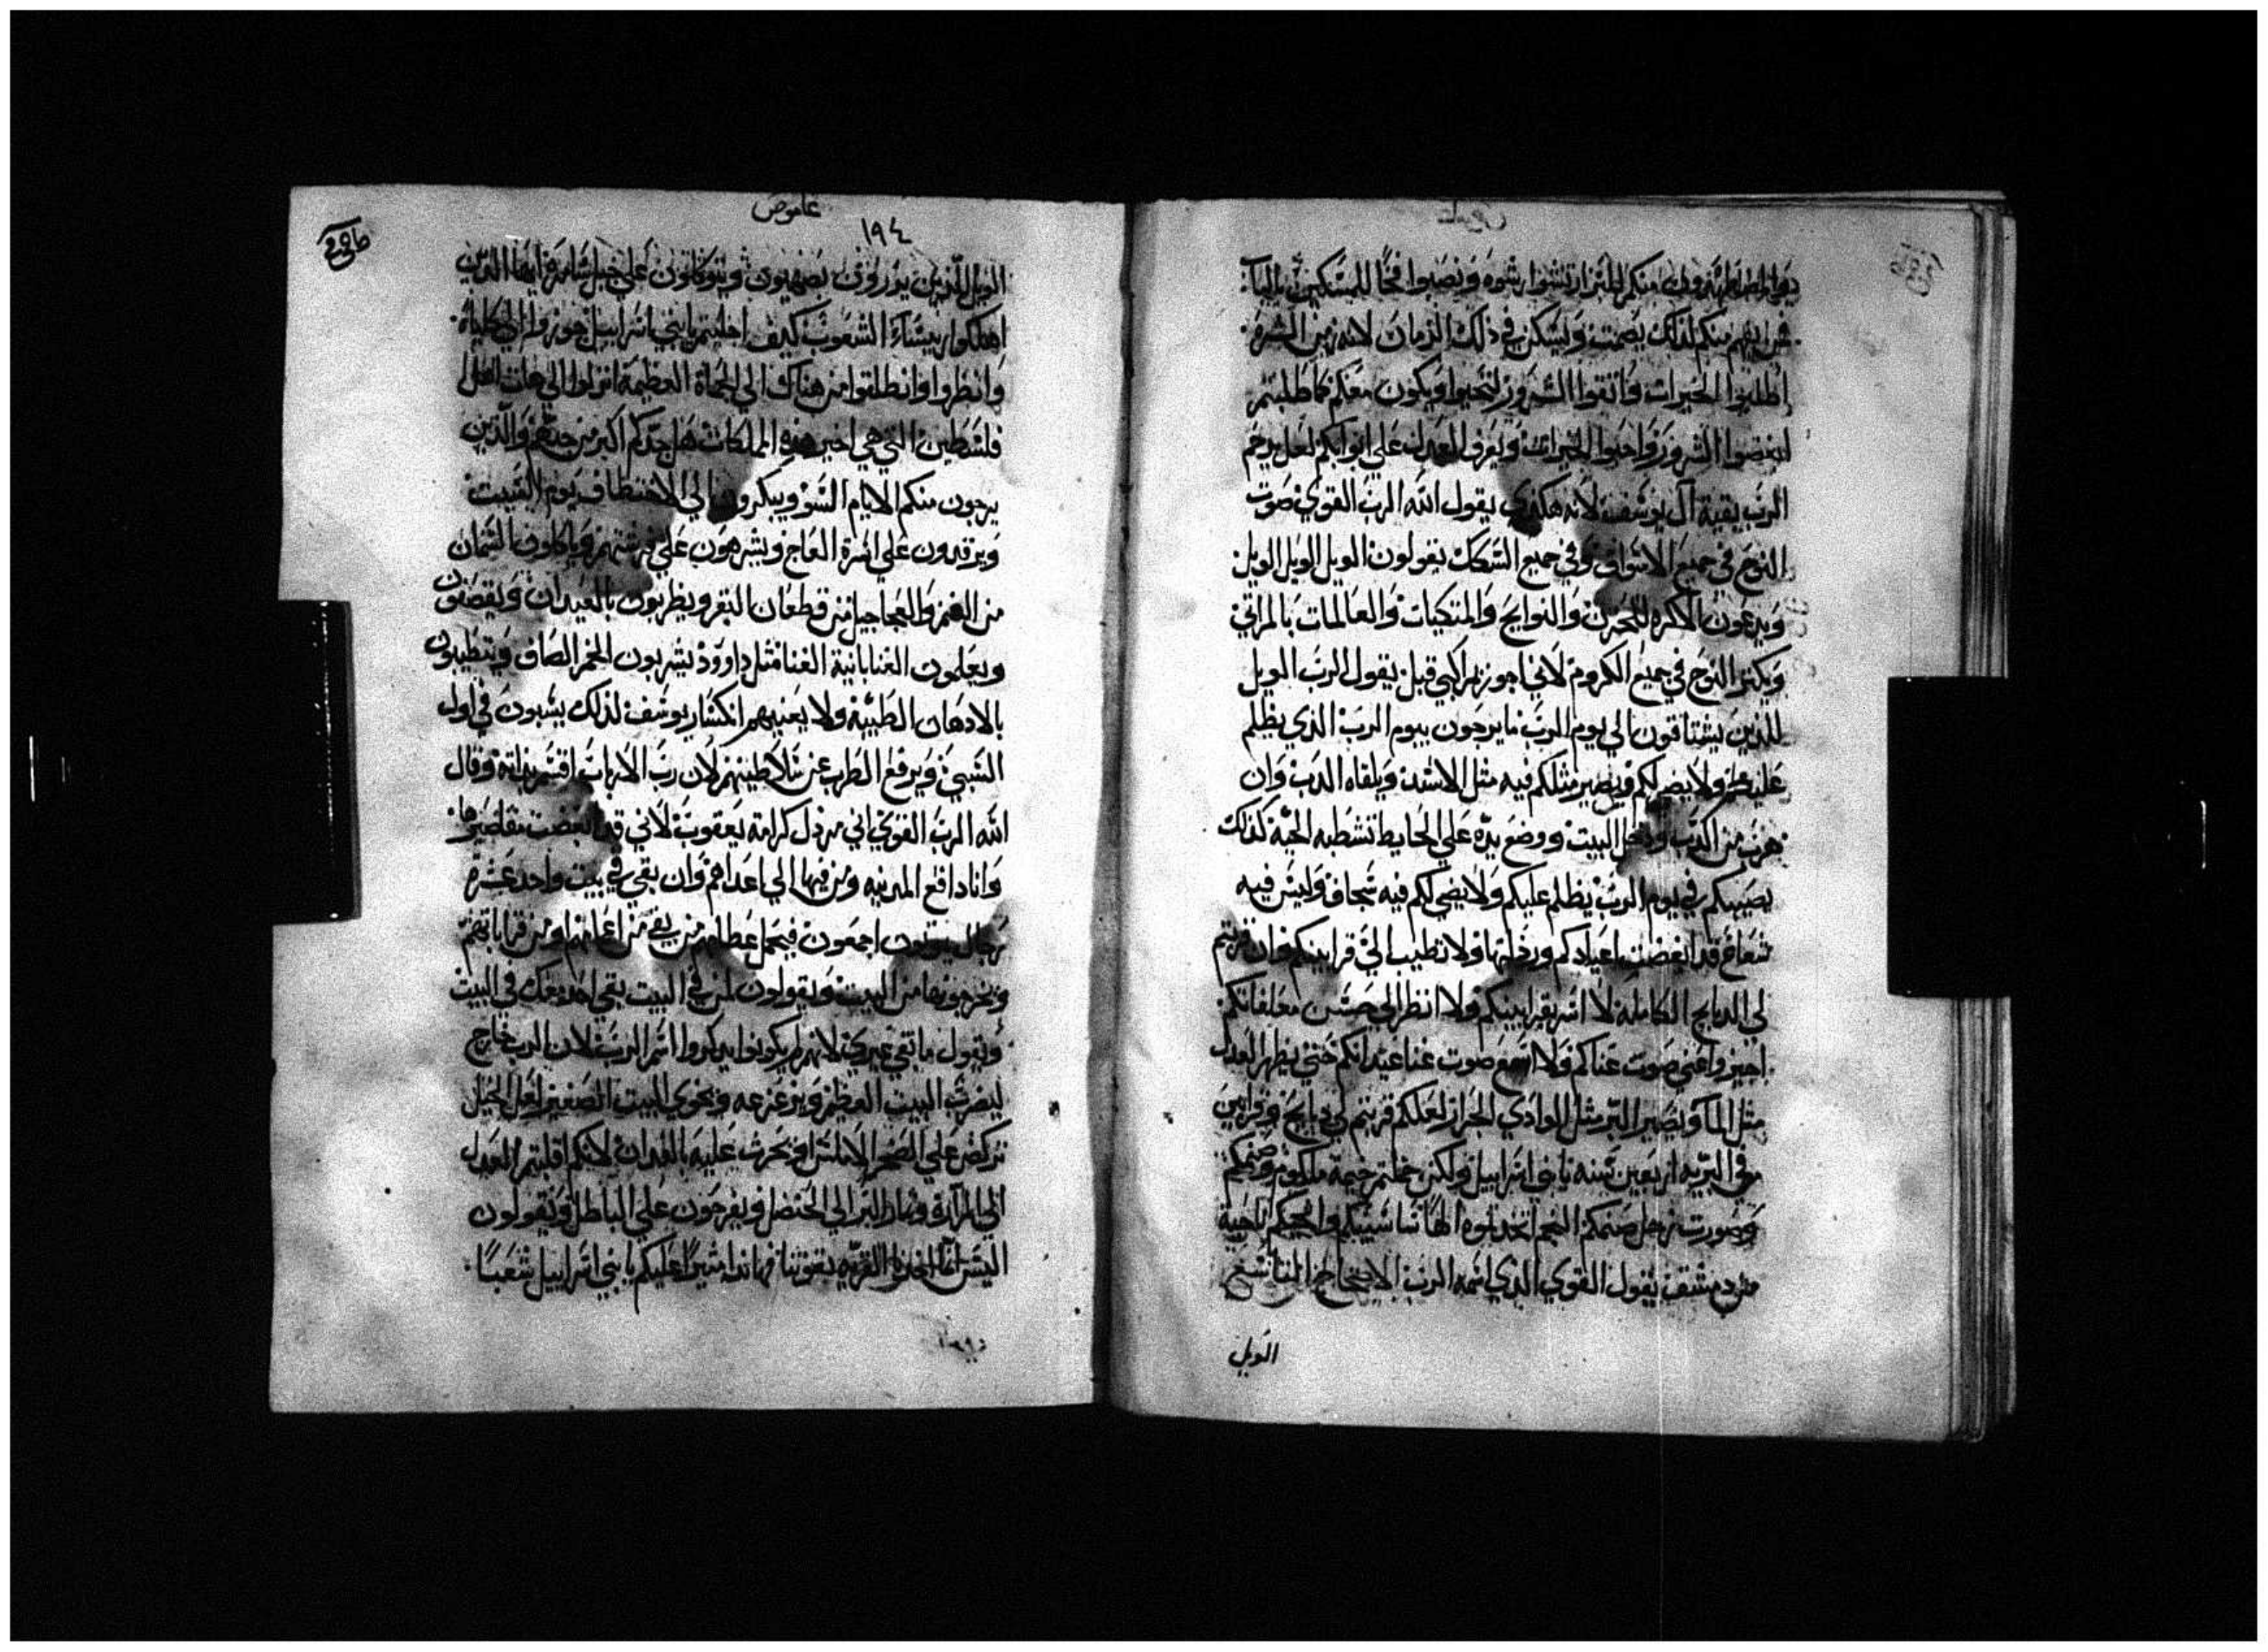 منكم الابرار ترتشوا رشوه ونصبوا فخا للمسكين بالباب
من يفهم منكم لذلك يصمت ويسكن في ذلك الزمان لانه زمن الشره
اطلبوا الخيرات واتقوا الشرور لتحيوا ويكون معكم كما طلبتم
ابغضوا الشرور واحبوا الخيرات ويعرف العدل علي ابوابكم لعل يرحم
الرب بقية ال يوسف لانه هكذي يقول الله الرب القوي صوت
النوح في جميع الاسواق وفي جميع السكك يقولون الويل الويل الويل
ويدعون الاكره للحزن والنوايح والمتكيات والعالمات بالمراتي
ويكتر النوح في جميع الكروم لاني اجوز يقول الرب الويل
للذين يشتاقون الي يوم الرب ما يرجون بيوم الرب الذي يظلم
عليكم ولا يضي لكم ويصير مثلكم فيه مثل الاسد ويلقاه الدب وان
هرب من الدب ودخل البيت ووضع يده علي الحايط تنشطبه الحية كذلك
يصيبكم في يوم الرب يظلم عليكم ولا يضي لكم فيه شجاف وليس فيه
شعاع قد ابغضت اعيادكم ورذلتها ولا تطيب الي قرابينكم وان قربتم
لي الدبايح الكامله لا اسر بقرابينكم ولا انظر الي حسن معلفاتكم
اجيزوا عني صوت غناكم ولا اسمع صوت غنا عيدانكم حتي يظهر العدل
مثل الما ويصير البر مثل الوادي الجرار لعلكم قربتم لي دبايح وقرابين
في البريه اربعين سنه يا بني اسراييل ولكن حملتم خيمة ملكوم وصنمكم
وصورت زحل صنمكم النجم اتخذتموه الها ناحية
من دمشق يقول القوي الذي اسمه الرب
الويل
عاموص
١٩٤
الويل للذين يزرون بصهيون ويتوكلون علي جبل شامرة الذين
اهلكوا ريساء الشعوب كيف احليتم يا بني اسراييل جوزوا الي
وانظروا وانطلقوا من هناك الي الحماة العظيمة انزلوا الي جات اهل
فلسطين التي هي اخير هذه المملكات هل حدكم اكبر من حدهم والذين
يرجون منكم الايام السو ويبكرون الي الاختطاف يوم السبت
ويرقدون علي اسرة العاج ويشرهون علي فرشهم وياكلون السمان
من الغنم والعجاجيل من قطعان البقر ويطربون بالعيدان ويقصفون
ويعلمون الغنا بانية الغنا مثل داوود يشربون الخمر الصاف ويتطيبون
بالادهان الطيبة ولا يعنيهم انكسار يوسف لذلك يسبون في اول
السبي ويرفع الطرب عن سلاطينهم لان رب الارباب اقسم بذاته وقال
الله الرب القوي اني مرذل كرامة يعقوب لاني قد ابغضت مقاصيرها
وانا دافع المدينه ومن فيها الي اعداهم وان بقي في بيت واحد عشرة
رجال يموتون اجمعون فيحمل عظامهم من بقي من اعمامهم او من قراباتهم
ويخرجونها من البيت ويقولون لمن في البيت بقي احد معك في البيت
ويقول ما بقي غيري لانهم لم يكونوا يدكروا اسم الرب لان الرب خارج
ليضرب البيت العظيم ويزعزعه ويخوي البيت الصغير لعل الخيل
تركض علي الصخر الاملس او يحرث عليه بالفدان لانكم اقلبتم العدل
الي المرارة وثمار البر الي الحنضل ويفرحون علي الباطل ويقولون
اليس انا اخذنا القريه بقوتنا فهاندا مثير عليكم يا بني اسراييل شعبا